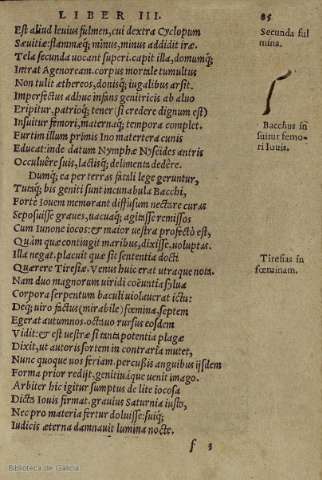 LIBER III. 85
Est aliud leuius fulmen, cui dextra Cyclopum
Sæuitiæ: flammæq; minus, minus addidit iræ.
Tela secunda uocant superi. capit illa, domumq;
Intrat Agenoream. corpus mortale tumultus
Non tulit æthereos, donisq; iugalibus arsit.
Imperfectus adhuc infans genitricis ab aluo
Eripitur, patrioq; tener (si credere dignum est)
Insuitur femori, maternaq; tempora complet.
Furtim illum primis Ino matertera cunis
Educat: inde datum Nymphæ Nyseides antris
Occuluêre suis, lactisq; alimenta dedêre.
Dumq; ea per terras fatali lege geruntur,
Tutaq; bis geniti sunt incunabula Bacchi,
Forte Iouem memorant diffusum nectare curas
Seposuisse graues, uacuaq; agitasse remissos
Cum Iunone iocos: et maior uestra profectò est,
Quàm quæ contingit maribus, dixisse, uoluptas.
Illa negat. placuit quæ sit sententia docti
Quærere Tiresiæ. Venus huic erat utraque nota.
Nam duo magnorum uiridi coëuntia sylua
Corpora serpentum baculi uiolauerat ictu:
Deq; uiro factus (mirabile) fœmina, septem
Egerat autumnos. octauo rursus eosdem
Vidit: & est uestræ si tanta potentia plagæ
Dixit, ut autoris sortem in contraria mutet,
Nunc quoque uos feriam. percussis anguibus ijsdem
Forma prior redijt. genitiuáque uenit imago.
Arbiter hic igitur sumptus de lite iocosa
Dicta Iouis firmat. grauius Saturnia iusto,
Nec pro materia fertur doluisse: suiq;
Iudicis æterna damnauit lumina nocte.
f 3
Secunda ful
mina.
Bacchus in
suitur femo-
ri Iouis.
Tiresias in
fœminam.
Biblioteca de Galicia